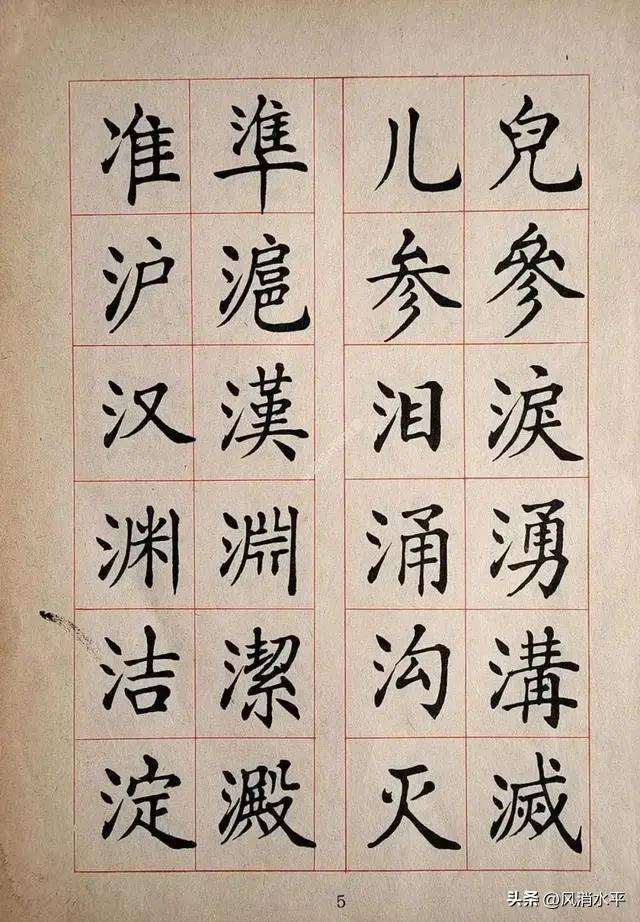 兒參淚湧溝滅
儿参泪涌沟灭
準滬漢淵潔澱
准沪汉渊洁淀
5
头条 @风消水平